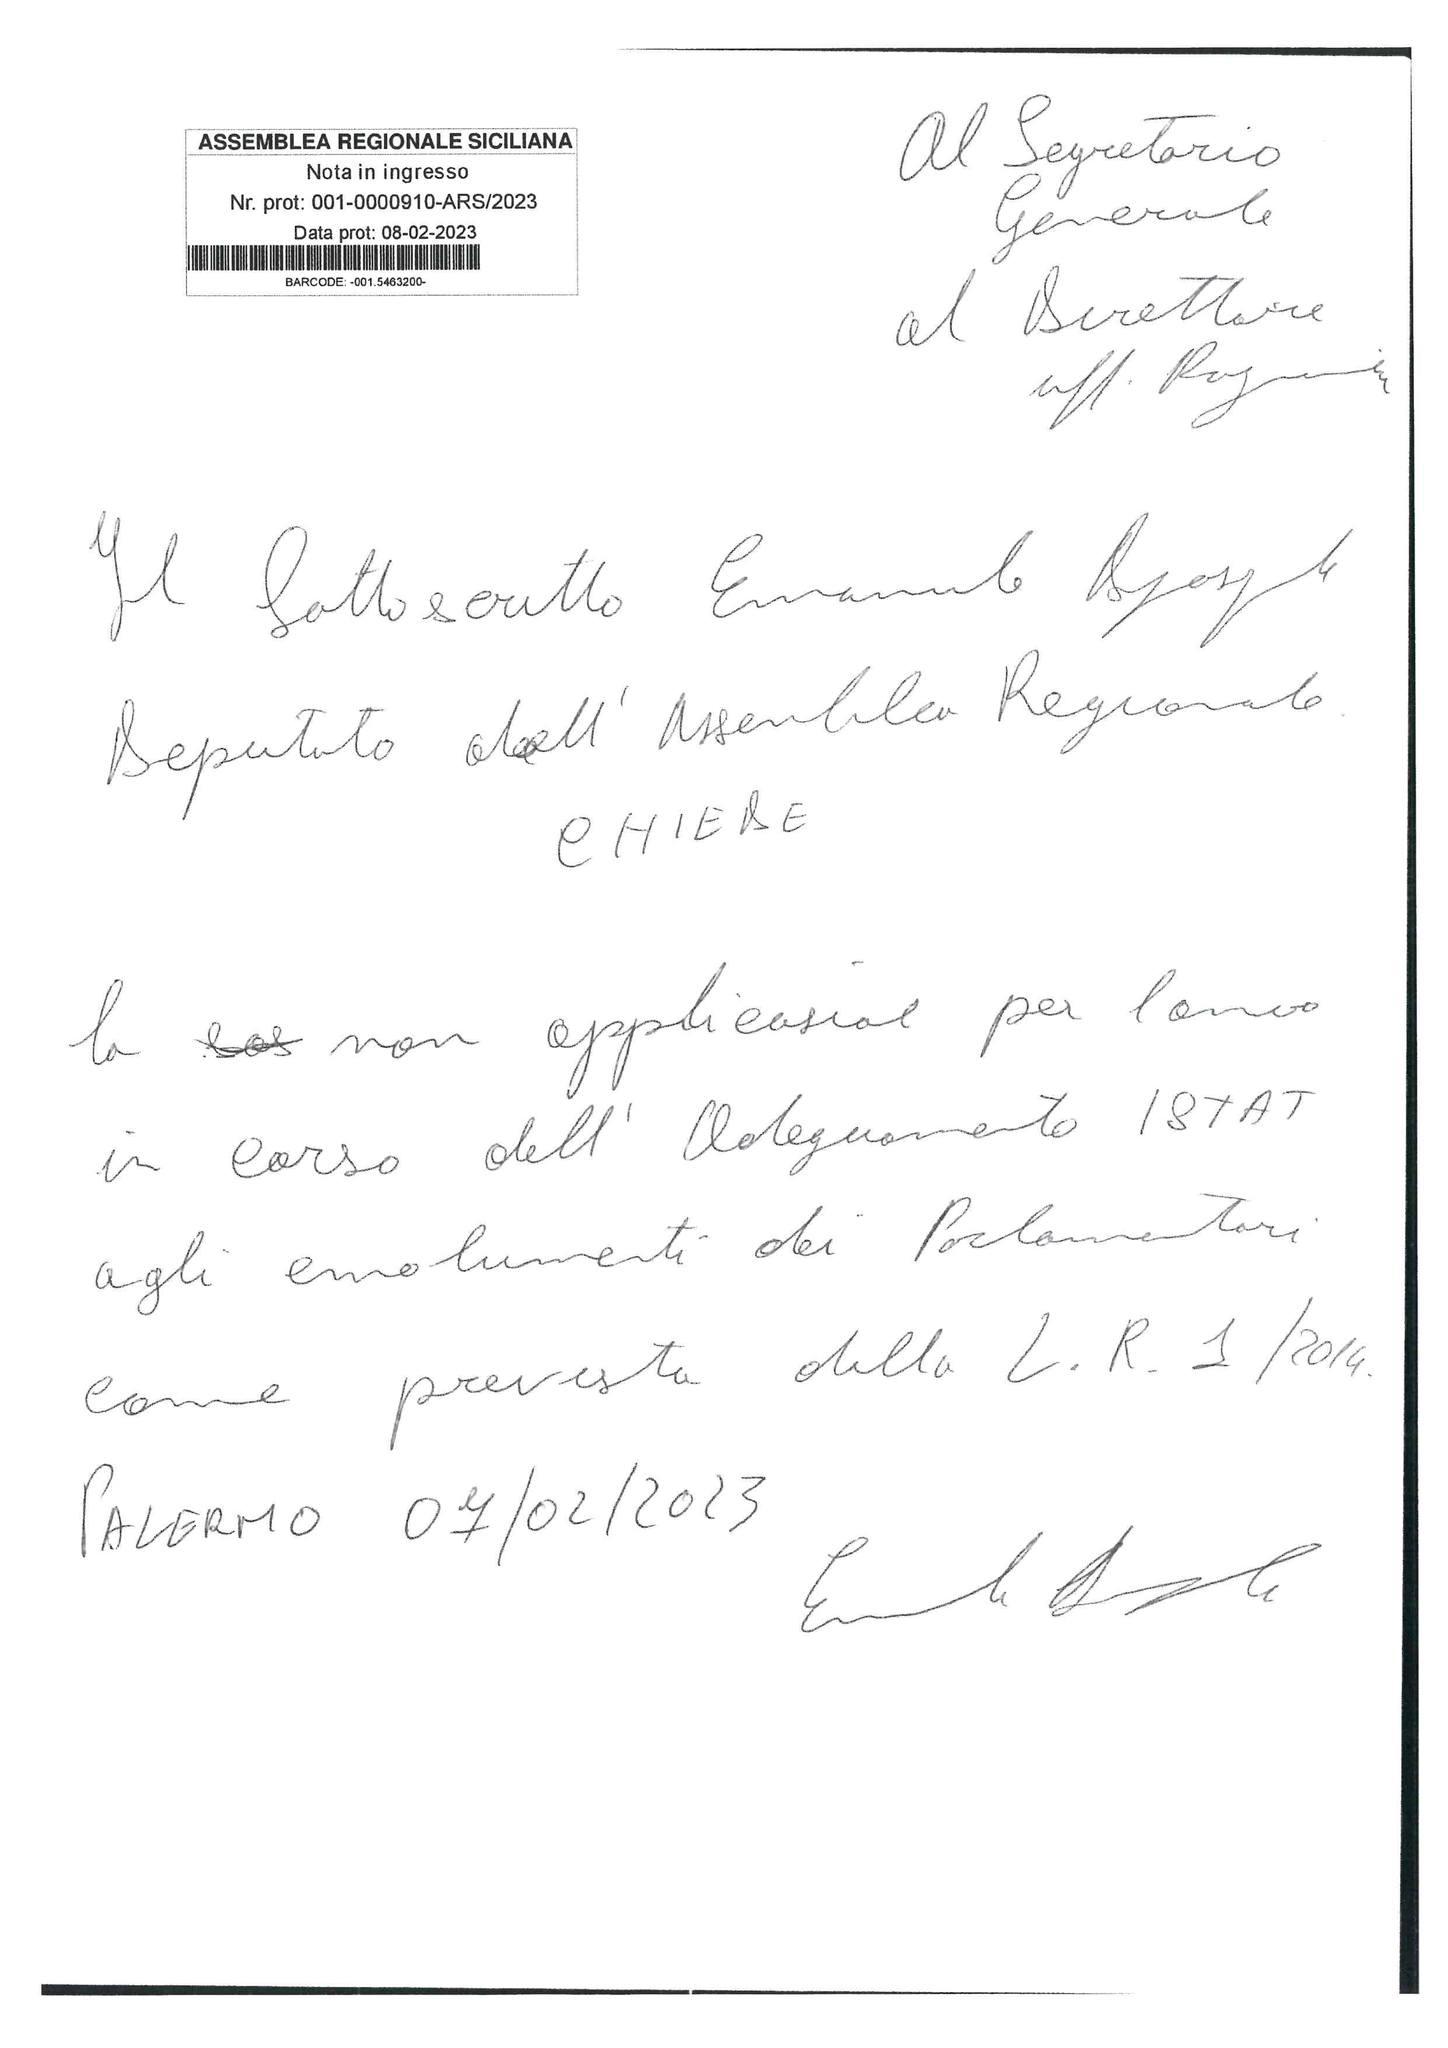 ASSEMBLEA REGIONALE SICILIANA
Nota in ingresso
Nr. prot: 001-0000910-ARS/2023
Data prot: 08-02-2023
BARCODE: -001.5463200-
Al Segretario
Generale
al Direttore
uff.
Il Sottoscritto Emanuele
Deputato dell' Assemblea Regionale
CHIEDE
la non per l'anno
in corso dell' Adeguamento ISTAT
agli emolumenti dei Parlamentari
come prevista dalla L. R. 1/2014.
PALERMO 07/02/2023